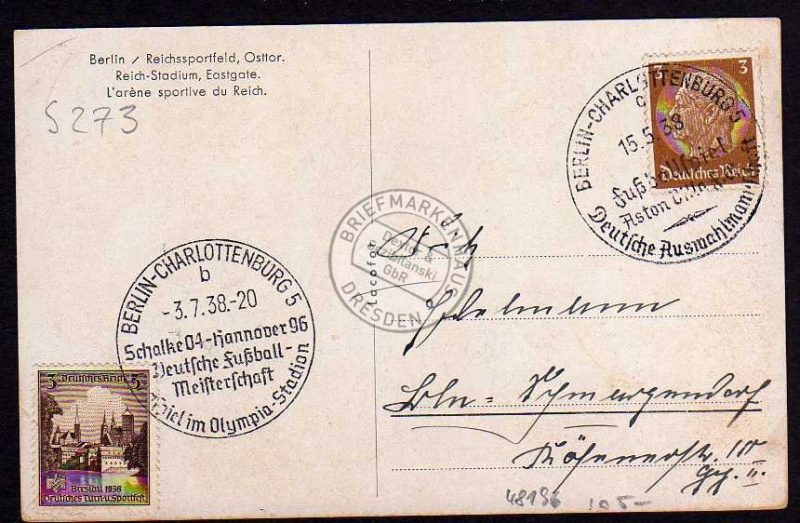 Berlin / Reichssportfeld, Osttor.
Reich-Stadium, Eastgate.
L'arène sportive du Reich.
S 273
BERLIN-CHARLOTTENBURG 5
b
-3.7.38.-20
Schalke 04-Hannover 96
Deutsche Fußball-
Meisterschaft
Spiel im Olympia-Stadion
3 Deutsches Reich 5
Breslau 1938
Deutsches Turn-u.Sportfest
BERLIN-CHARLOTTENBURG 5
c
15.5.38
Fußballspiel
Aston Villa
Deutsche Auswahlmannschaft
3 3
Deutsches Reich
BRIEFMARKENHAUS
Dexler &
GbR
DRESDEN
Bln-Schmargendorf
48196 105-